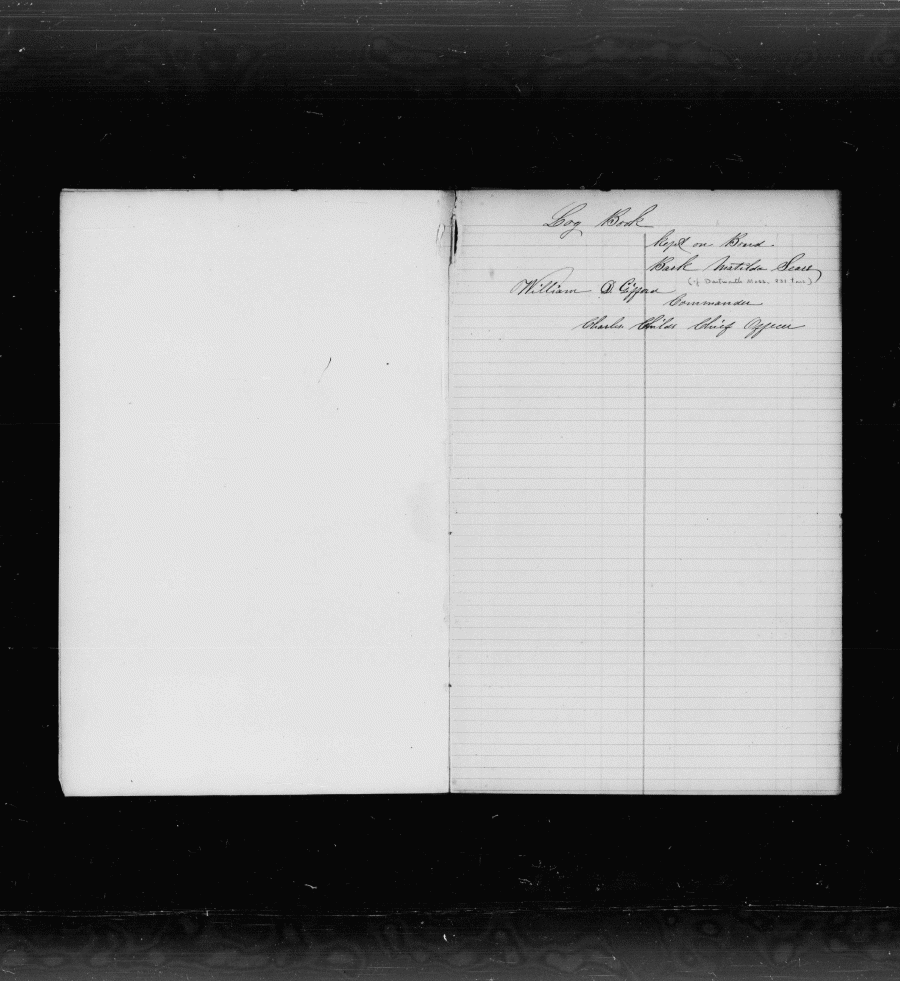 Log Book
Kept on Board
Bark Matilda Sears
(of Dartmouth Mass.
William D Gifford
Commander
Charles Childs Chief Officer